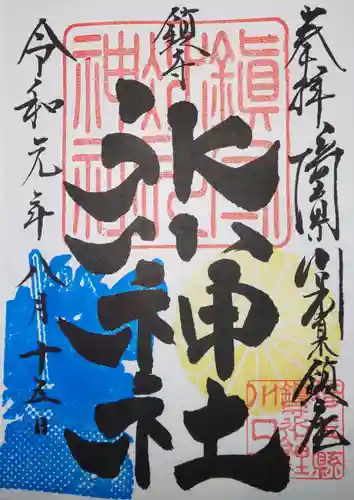 奉拝
鎮座
鎮守
氷川神社
令和元年八月十五日
鎮守氷川神社